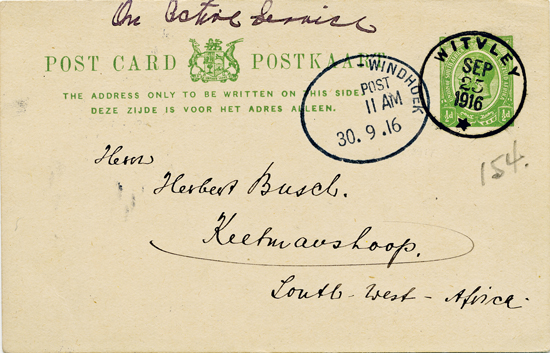 On Active Service
POST CARD POSTKAART
THE ADDRESS ONLY TO BE WRITTEN ON THIS SIDE
DEZE ZIJDE IS VOOR HET ADRES ALLEEN.
WINDHOEK
POST
11 AM
30.9.16
WITVLEY
SEP
25
1916
½d
154.
Herrn
Herbert Busch.
Keetmanshoop.
South-West-Africa.